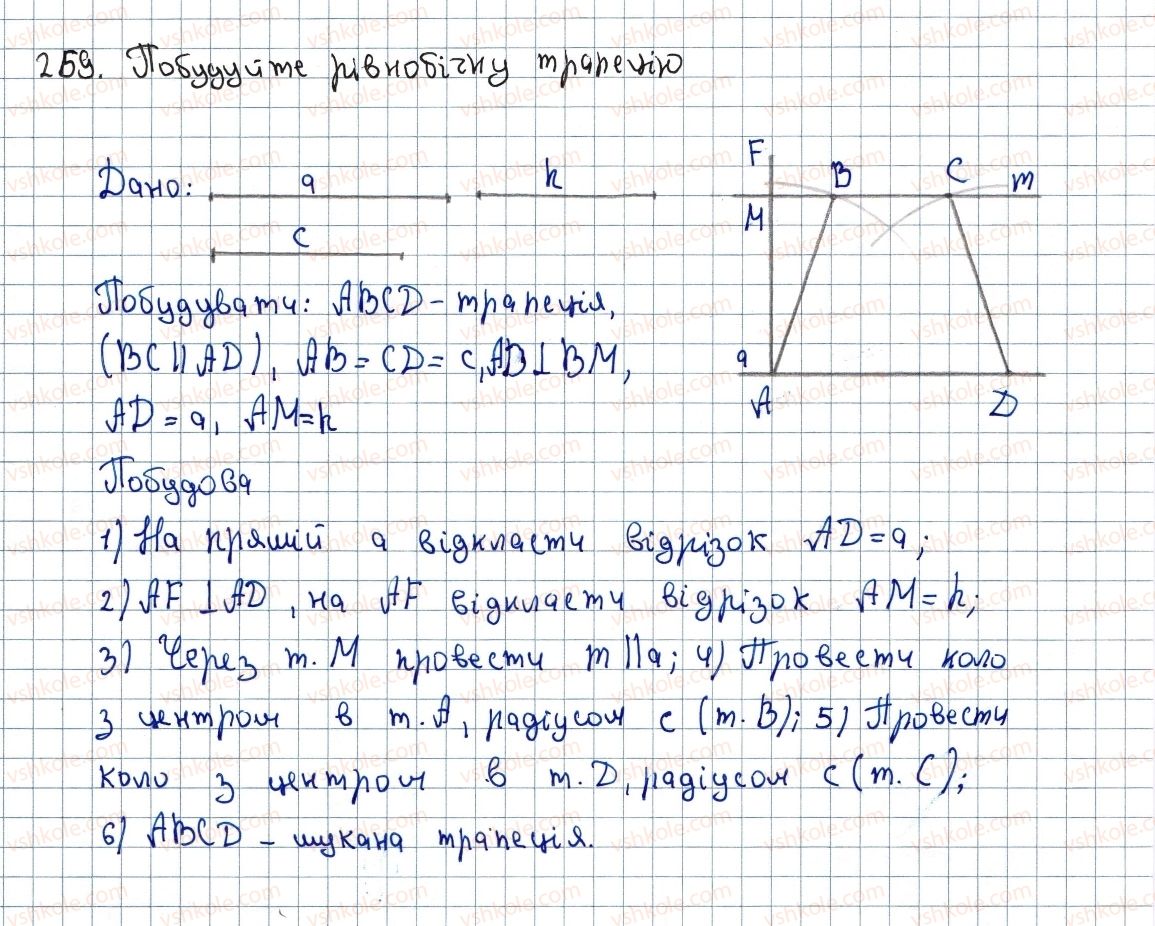 259. Побудуйте рівнобічну трапецію
Дано: a h
c
F B C m
M
a A D
Побудувати: ABCD – трапеція,
(BC || AD), AB = CD = c, AD ⊥ BM,
AD = a, AM = h
Побудова
1) На прямій a відкласти відрізок AD = a;
2) AF ⊥ AD, на AF відкласти відрізок AM = h;
3) Через т. M провести m || a; 4) Провести коло
з центром в т. A, радіусом c (т. B); 5) Провести
коло з центром в т. D, радіусом c (т. C);
6) ABCD – шукана трапеція.
vshkole.com